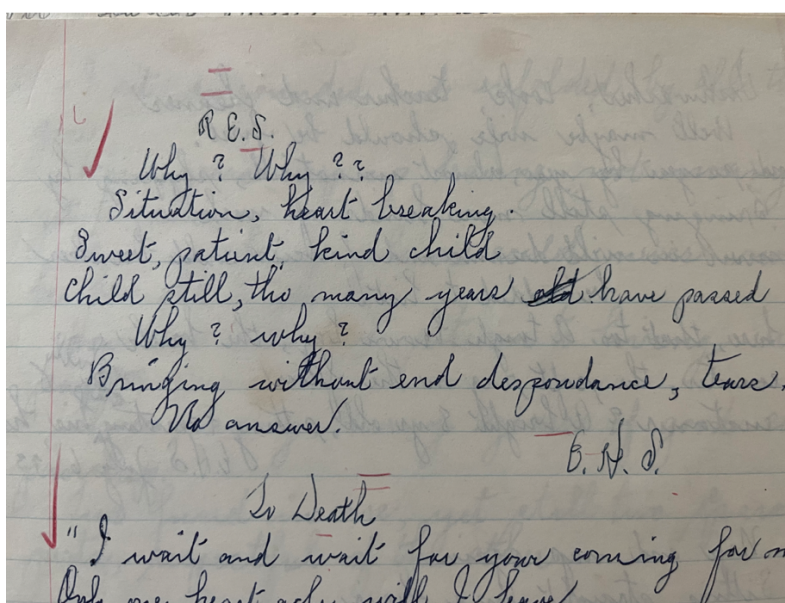 R.E.S.
Why ? Why ? ?
Situation, heart breaking.
Sweet, patient, kind child
Child still, tho many years have passed
Why ? why ?
Bringing without end despondance, tears,
No answer.
E. H. S.
To Death
"I wait and wait for your coming for
Only one heart ache will I leave